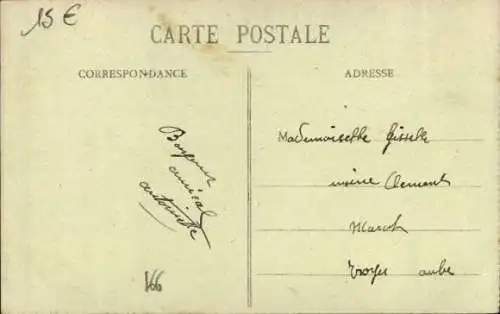 15 €
CARTE POSTALE
CORRESPONDANCE
ADRESSE
Bonjour
amical
antoinette
Mademoiselle Giselle
usine Clement
Marot
Troyes aube
166